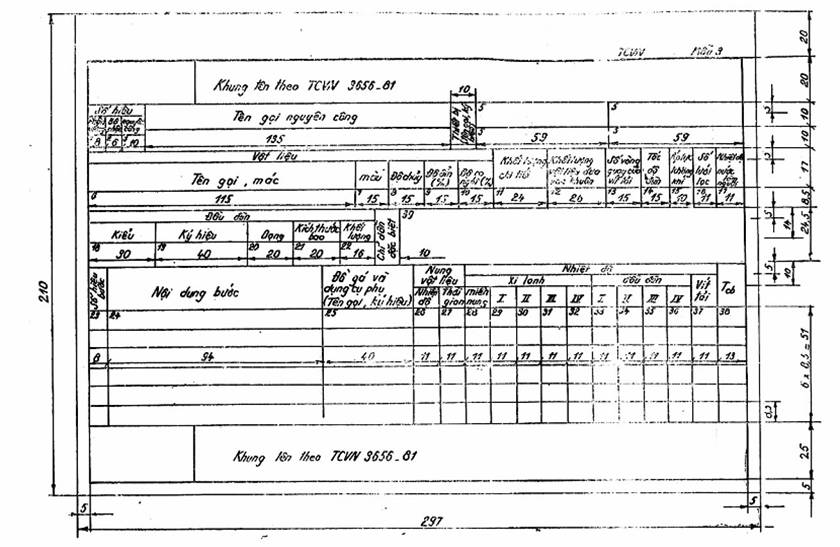 TCVN Mẫu 9
Khung tên theo TCVN 3656-81
20
20
10
10
17
8,5
24,5
Số hiệu
Tên gọi nguyên công
10
5 5
3 3
8 6 10 135 59 59
Vật liệu
Tên gọi, mác
màu
Độ chảy
Độ ẩm (%)
Khối lượng chi tiết
Số vòng quay của vít tải
Tốc độ
Số trái lọc
6 7 8 9 10 11 12 13 14 15 16 17
115 15 15 15 15 24 26 15 15 10 11 11
Đầu đàn
39
Chỉ dẫn đặc biệt
Kiểu
Ký hiệu
Dạng
Kích thước bao
Khối lượng
18 19 20 21 22
30 40 20 20 16 10
14
10
Số hiệu bước
Nội dung bước
Đồ gá và dụng cụ phụ (Tên gọi, ký hiệu)
Nung vật liệu
Nhiệt độ
Thời gian
Nhiệt độ
miền nung
Xi lanh
I II III IV
đầu đàn
I II III IV
Vít tải
Tcb
23 24 25 26 27 28 29 30 31 32 33 34 35 36 37 38
8 94 40 11 11 11 11 11 11 11 11 11 11 11 11 13
6 x 8,5 = 51
8,5
Khung tên theo TCVN 3656-81
25
5
210
5
297
5